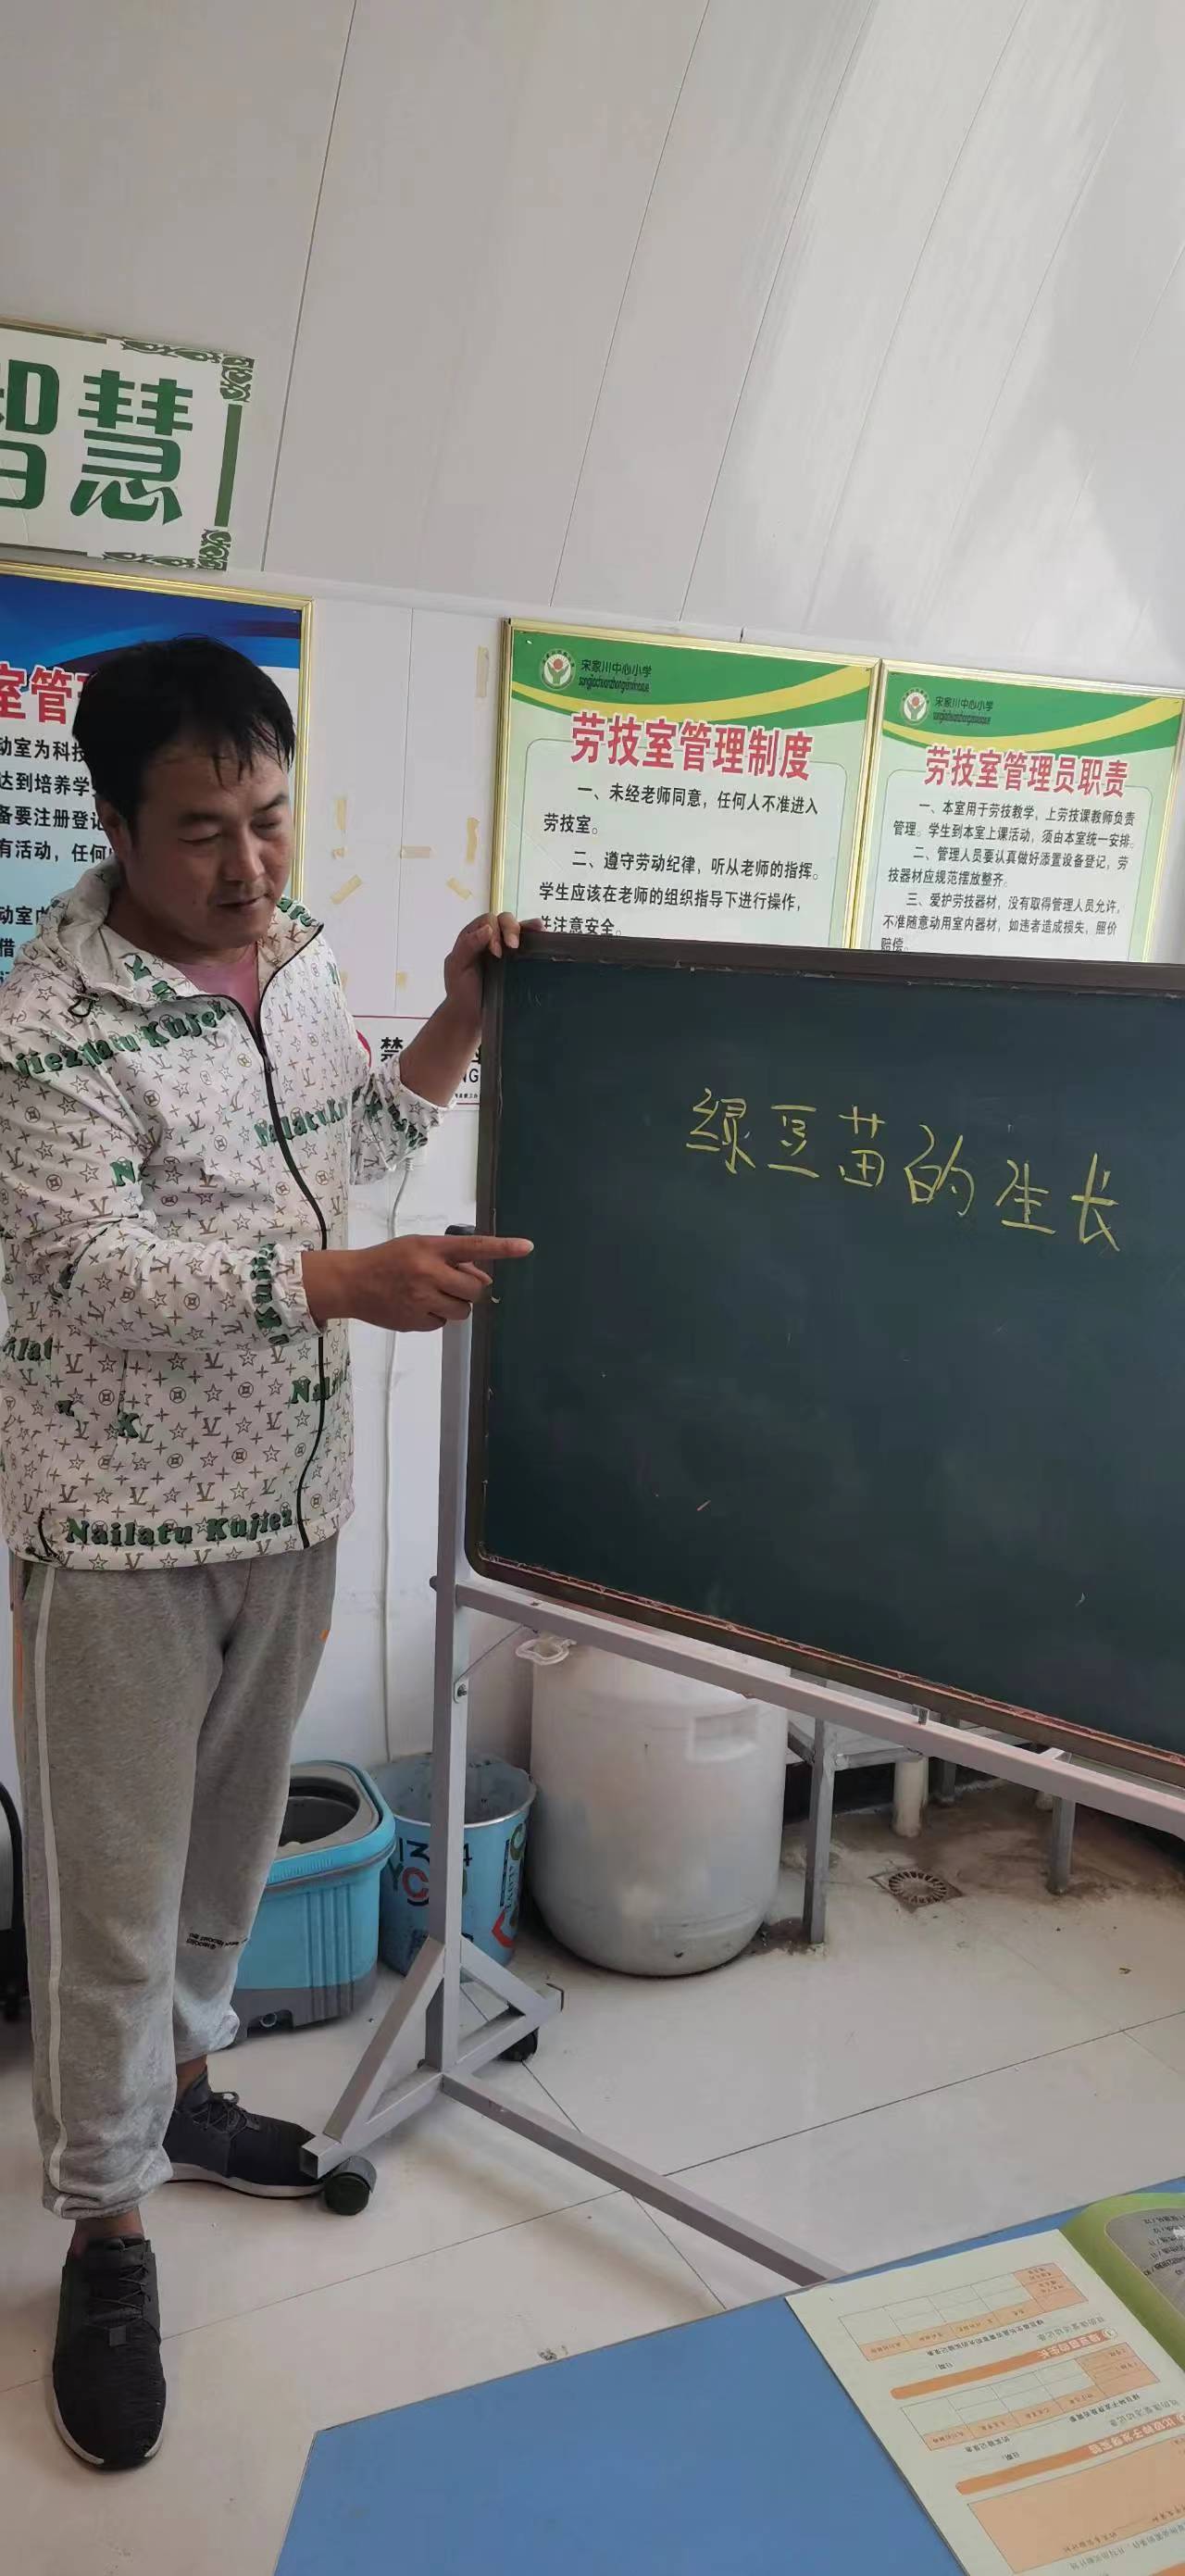 智慧
室管
动室为科技
达到培养学
备要注册登记
有活动，任何
动室内
借
宋家川中心小学
songjiachuanzhongxinxiaoxue
劳技室管理制度
一、未经老师同意，任何人不准进入
劳技室。
二、遵守劳动纪律，听从老师的指挥。
学生应该在老师的组织指导下进行操作，
并注意安全。
宋家川中心小学
劳技室管理员职责
一、本室用于劳技教学，上劳技课教师负责
管理。学生到本室上课活动，须由本室统一安排。
二、管理人员要认真做好添置设备登记，劳
技器材应规范摆放整齐。
三、爱护劳技器材，没有取得管理人员允许，
不准随意动用室内器材，如违者造成损失，照价
赔偿。
禁
绿豆苗的生长
Nailatu Kujiez